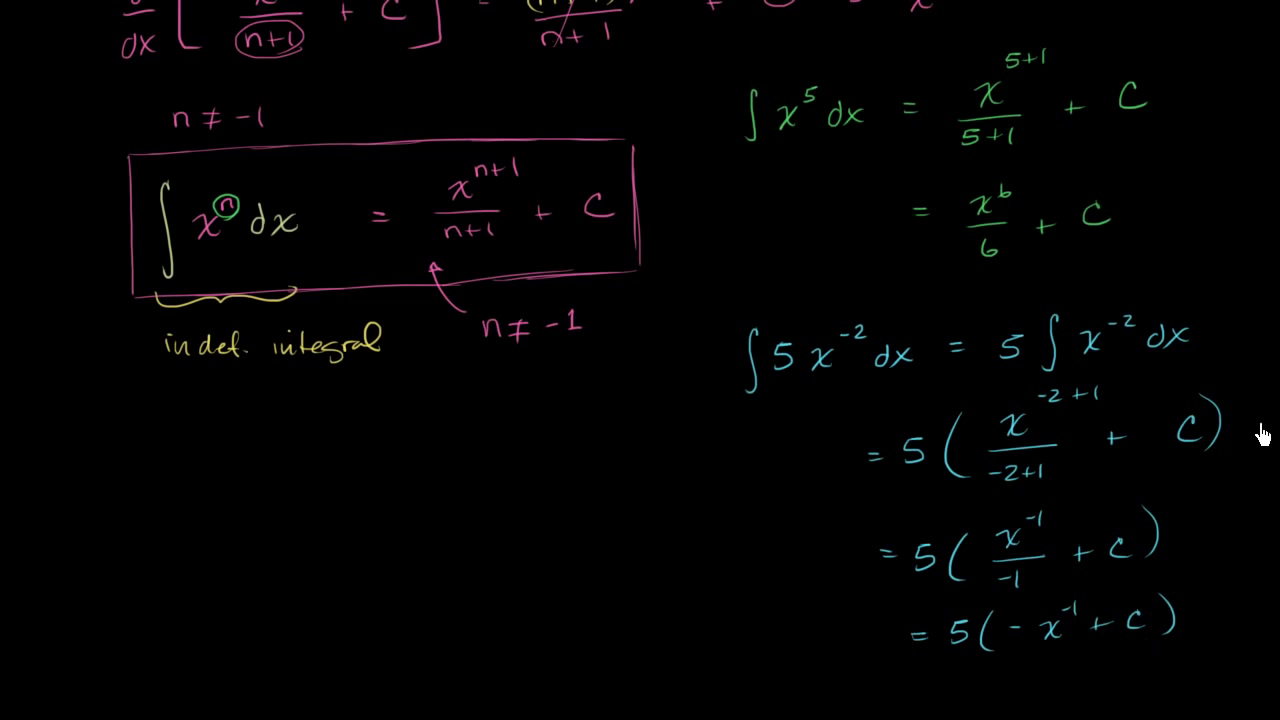 d/dx [ x/(n+1) + C ] = (n+1)/(n+1) + x
n ≠ -1
∫ xⁿ dx = xⁿ⁺¹/(n+1) + C
n ≠ -1
indef. integral
∫ x⁵ dx = x⁵⁺¹/(5+1) + C
= x⁶/6 + C
∫ 5 x⁻² dx = 5 ∫ x⁻² dx
= 5 ( x⁻²⁺¹/(-2+1) + C )
= 5 ( x⁻¹/(-1) + C )
= 5 ( - x⁻¹ + C )